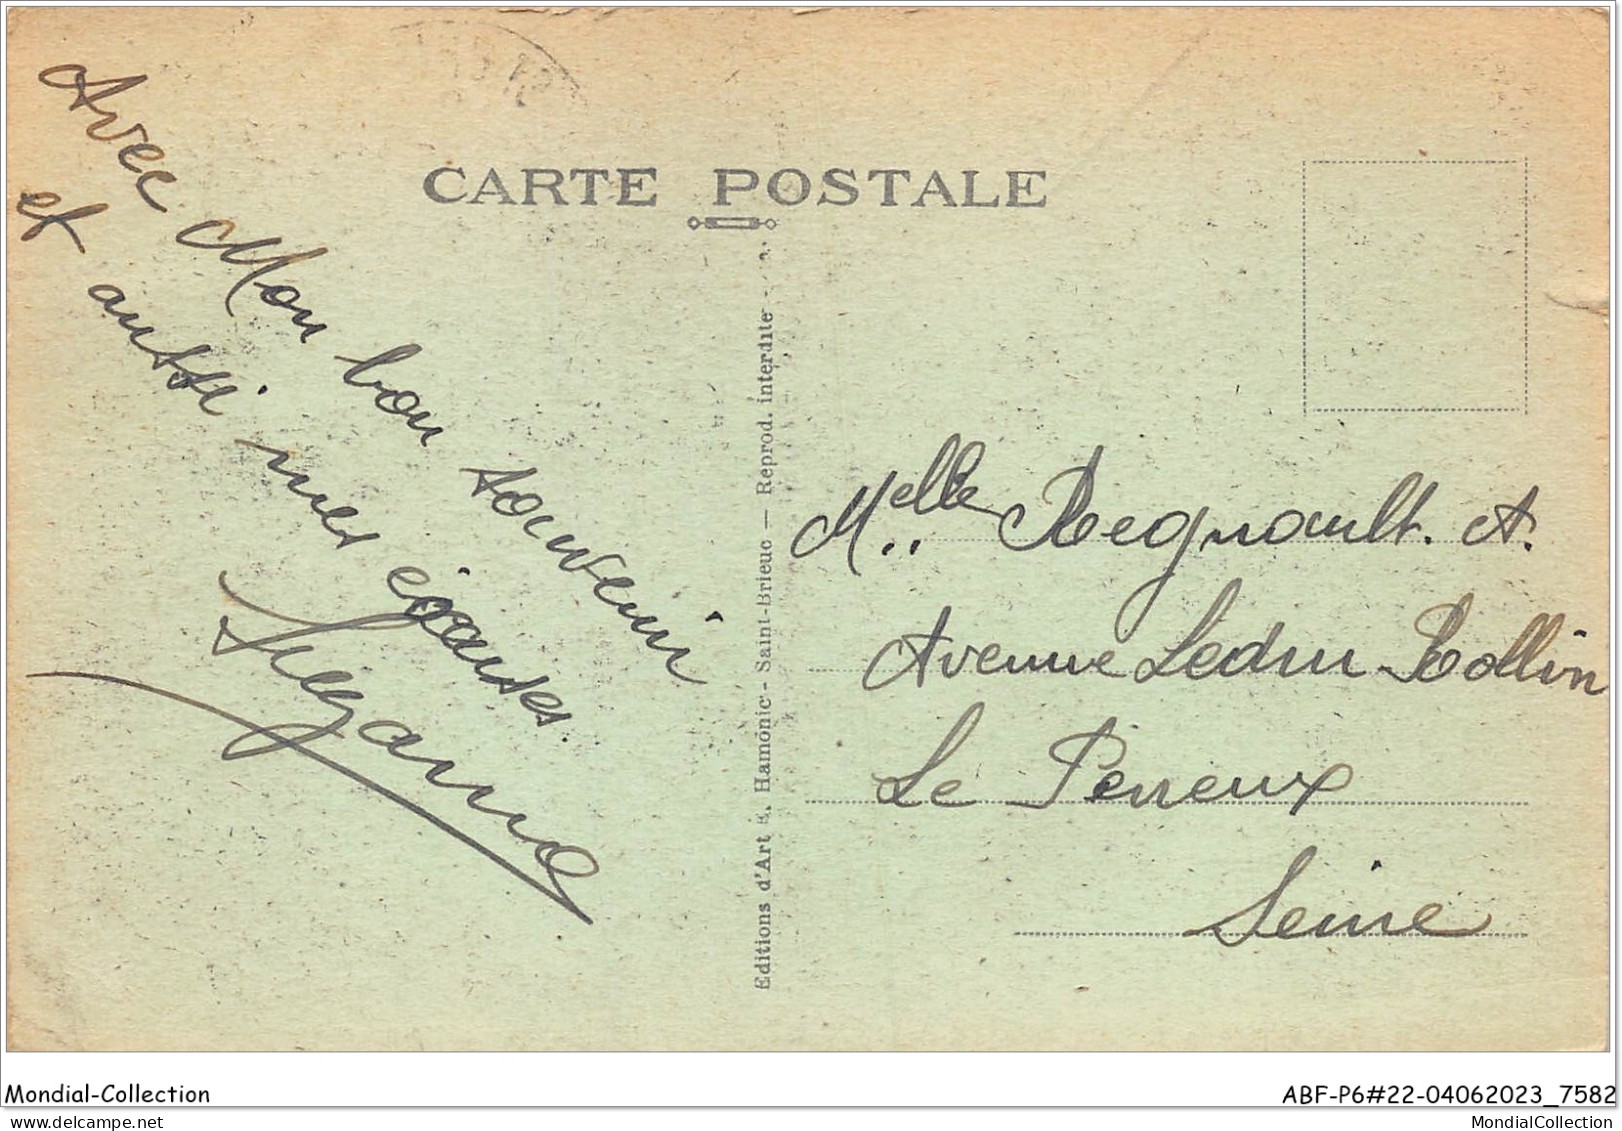 CARTE POSTALE
Avec Mon bon souvenir
et aussi mes
Editions d'Art E. Hamonic - Saint-Brieuc — Reprod. interdite -
Melle Regnault. A.
Avenue Ledru-Rollin
Le Perreux
Seine
Mondial-Collection
ABF-P6#22-04062023_7582
Mondial-Collection.delcampe.net
MondialCollection